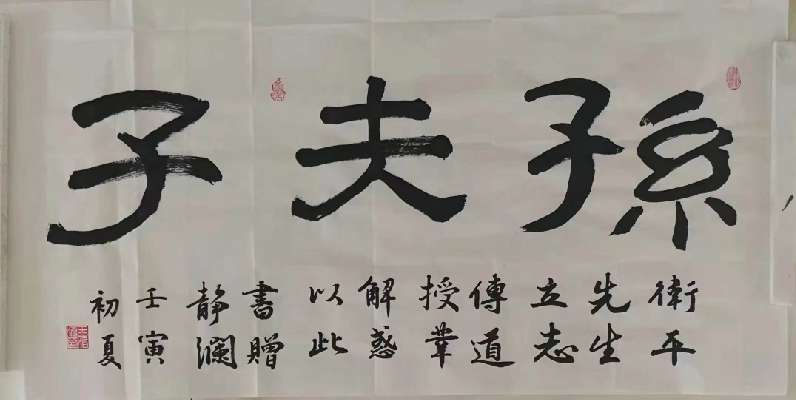 孫夫子
衛平
先生
立志
傳道
授業
解惑
以此
書贈
静瀾
壬寅
初夏